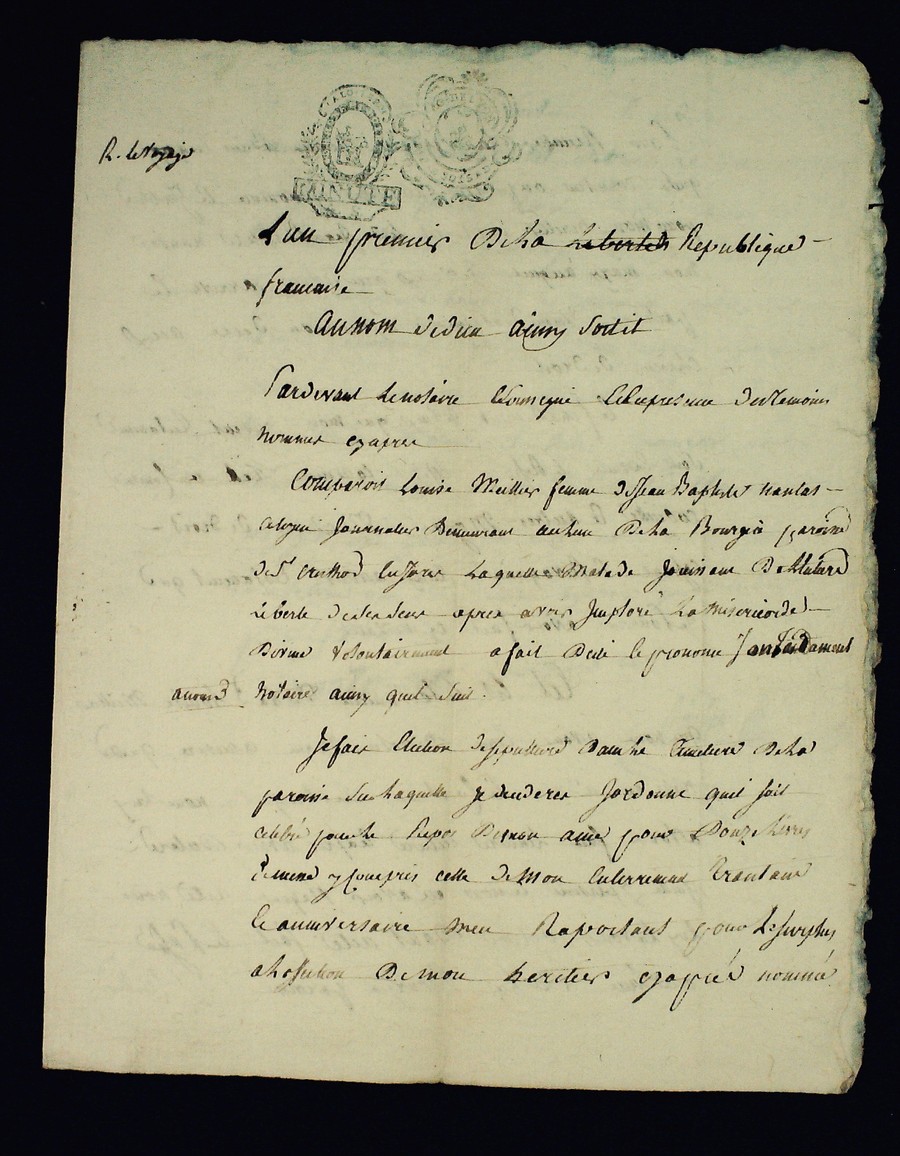 MINUTE
L'an premier De La Liberté Republique
francaise
au nom de dieu ainsy soitil
Pardevant Le notaire Soussigné et En presence des Temoins
nommes cyapres
Comparoit Louise Meillier femme de Jean Baptiste
Journalier Demeurant au lieu De La Bourgia paroisse
de St Laquelle Malade Jouissant De
Liberté de ses sens apres avoir Imploré La Misericorde
Divine Volontairement a fait Dicté Le prononcé Testament
a nous Notaire ainsy quil Suit.
Je fais Election de sepulture Dans Le Cimetiere De La
paroisse Sur Laquelle je decederes Jordonne quil soit
celebré pour Le Repos De mon ame pour Douze Livres
de messe y Compris celle de Mon Enterrement Trantain
et anniversaire men Raportant pour Le Surplus
a Laffection De mon heritier cyapres nommé